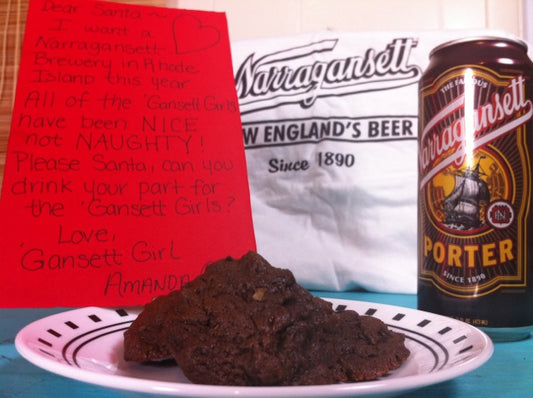 Dear Santa ~
I want a
Narragansett
Brewery in Rhode
Island this year
All of the 'Gansett Girls
have been NICE
not NAUGHTY!
Please Santa, can you
drink your part for
the 'Gansett Girls?
Love,
'Gansett Girl
AMANDA
Narragansett
W ENGLAND'S BEER
Since 1890
THE FAMOUS
Narragansett
PORTER
SINCE 1890